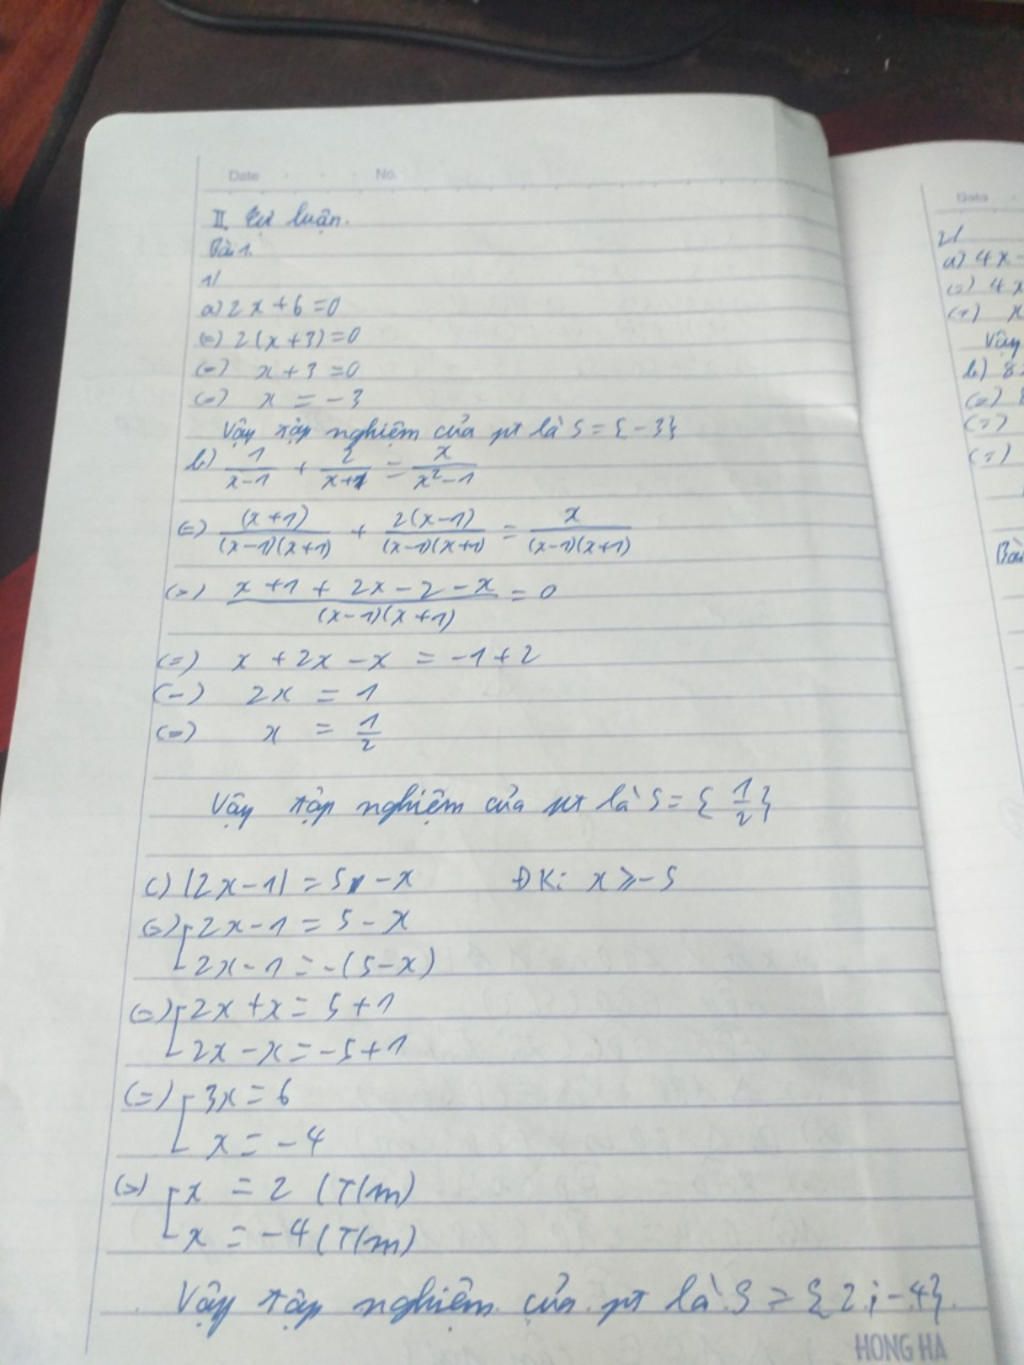 Date No.
II. Tự luận.
Bài 1.
1/
a) 2x + 6 = 0
(=) 2(x + 3) = 0
(=) x + 3 = 0
(=) x = -3
Vậy tập nghiệm của pt là S = {-3}
b) 1/(x-1) + 2/(x+1) = x/(x²-1)
(=) (x+1)/((x-1)(x+1)) + 2(x-1)/((x-1)(x+1)) = x/((x-1)(x+1))
(=) (x + 1 + 2x - 2 - x)/((x-1)(x+1)) = 0
(=) x + 2x - x = -1 + 2
(=) 2x = 1
(=) x = 1/2
Vậy tập nghiệm của pt là S = {1/2}
c) |2x - 1| = 5 - x ĐK: x ⩾ -5
(=) [2x - 1 = 5 - x
2x - 1 = -(5 - x)
(=) [2x + x = 5 + 1
2x - x = -5 + 1
(=) [3x = 6
x = -4
(=) [x = 2 (T/m)
x = -4 (T/m)
Vậy tập nghiệm của pt là S = {2; -4}.
HONG HA
Date
2/
a) 4x -
(=) 4x
(=) x
Vậy
b) 8
(=)
(=)
(=)
Bài